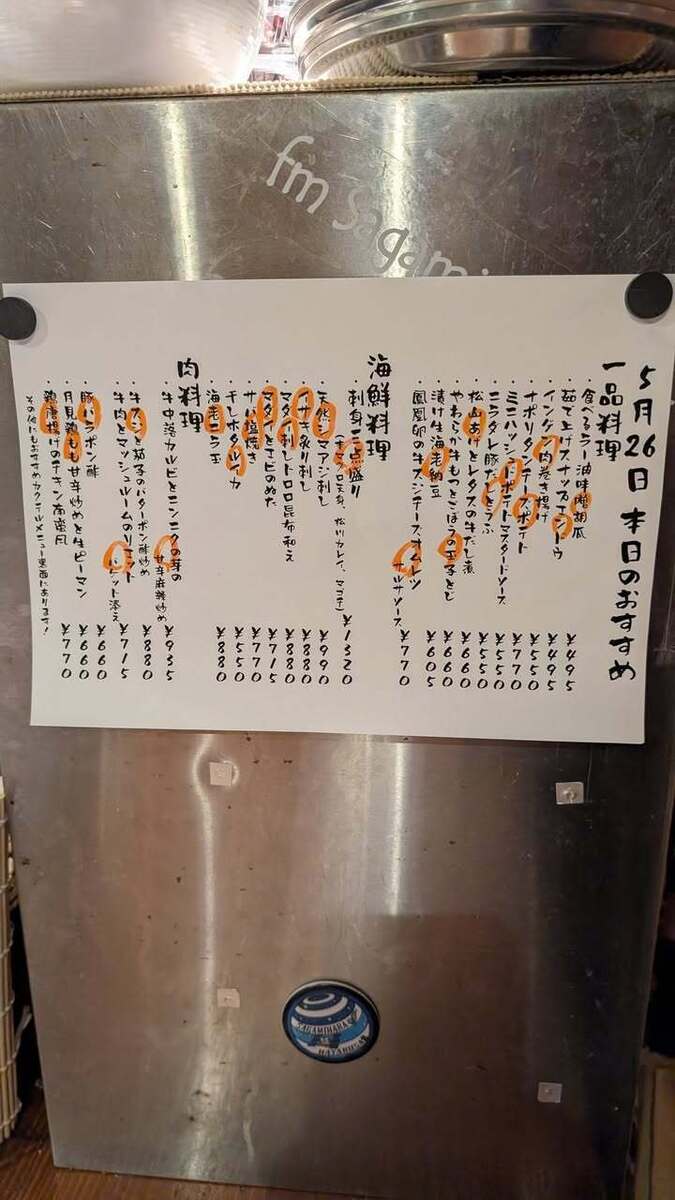 fm Sagami
5月26日 本日のおすすめ
一品料理
・食べるラー油味噌胡瓜 ¥495
・茹で上げスナップエンドウ ¥495
・インゲン肉巻き揚げ ¥550
・ナポリタンチーズポテト ¥550
・ミニハッシュドポテトマスタードソース ¥770
・ニラダレ豚だきどうふ ¥550
・松山あげとレタスの牛だし煮 ¥550
・やわらか牛もつとごぼうの玉子とじ ¥660
・漬け生海老納豆 ¥605
・鳳凰卵の牛スジチーズオムレツ サルサソース ¥770
海鮮料理
・刺身三点盛り ¥1320
(本マグロ大トロ、松川カレイ、マゴチ)
・天然マアジ刺し ¥990
・イサキ炙り刺し ¥880
・マダイ刺しトロロ昆布和え ¥880
・マダイとエビのぬた ¥715
・サバ塩焼き ¥770
・干しホタルイカ ¥550
・海老ニラ玉 ¥880
肉料理
・牛中落カルビとニンニクの芽の甘辛麻辣炒め ¥935
・牛スジと茄子のバターポン酢炒め ¥880
・牛肉とマッシュルームのリエット バゲット添え ¥715
・豚バラポン酢 ¥660
・月見鶏もも甘辛炒めと生ピーマン ¥660
・鶏唐揚げのチキン南蛮風 ¥770
その他にもおすすめカクテルメニュー裏面にあります!
SAGAMIHARA